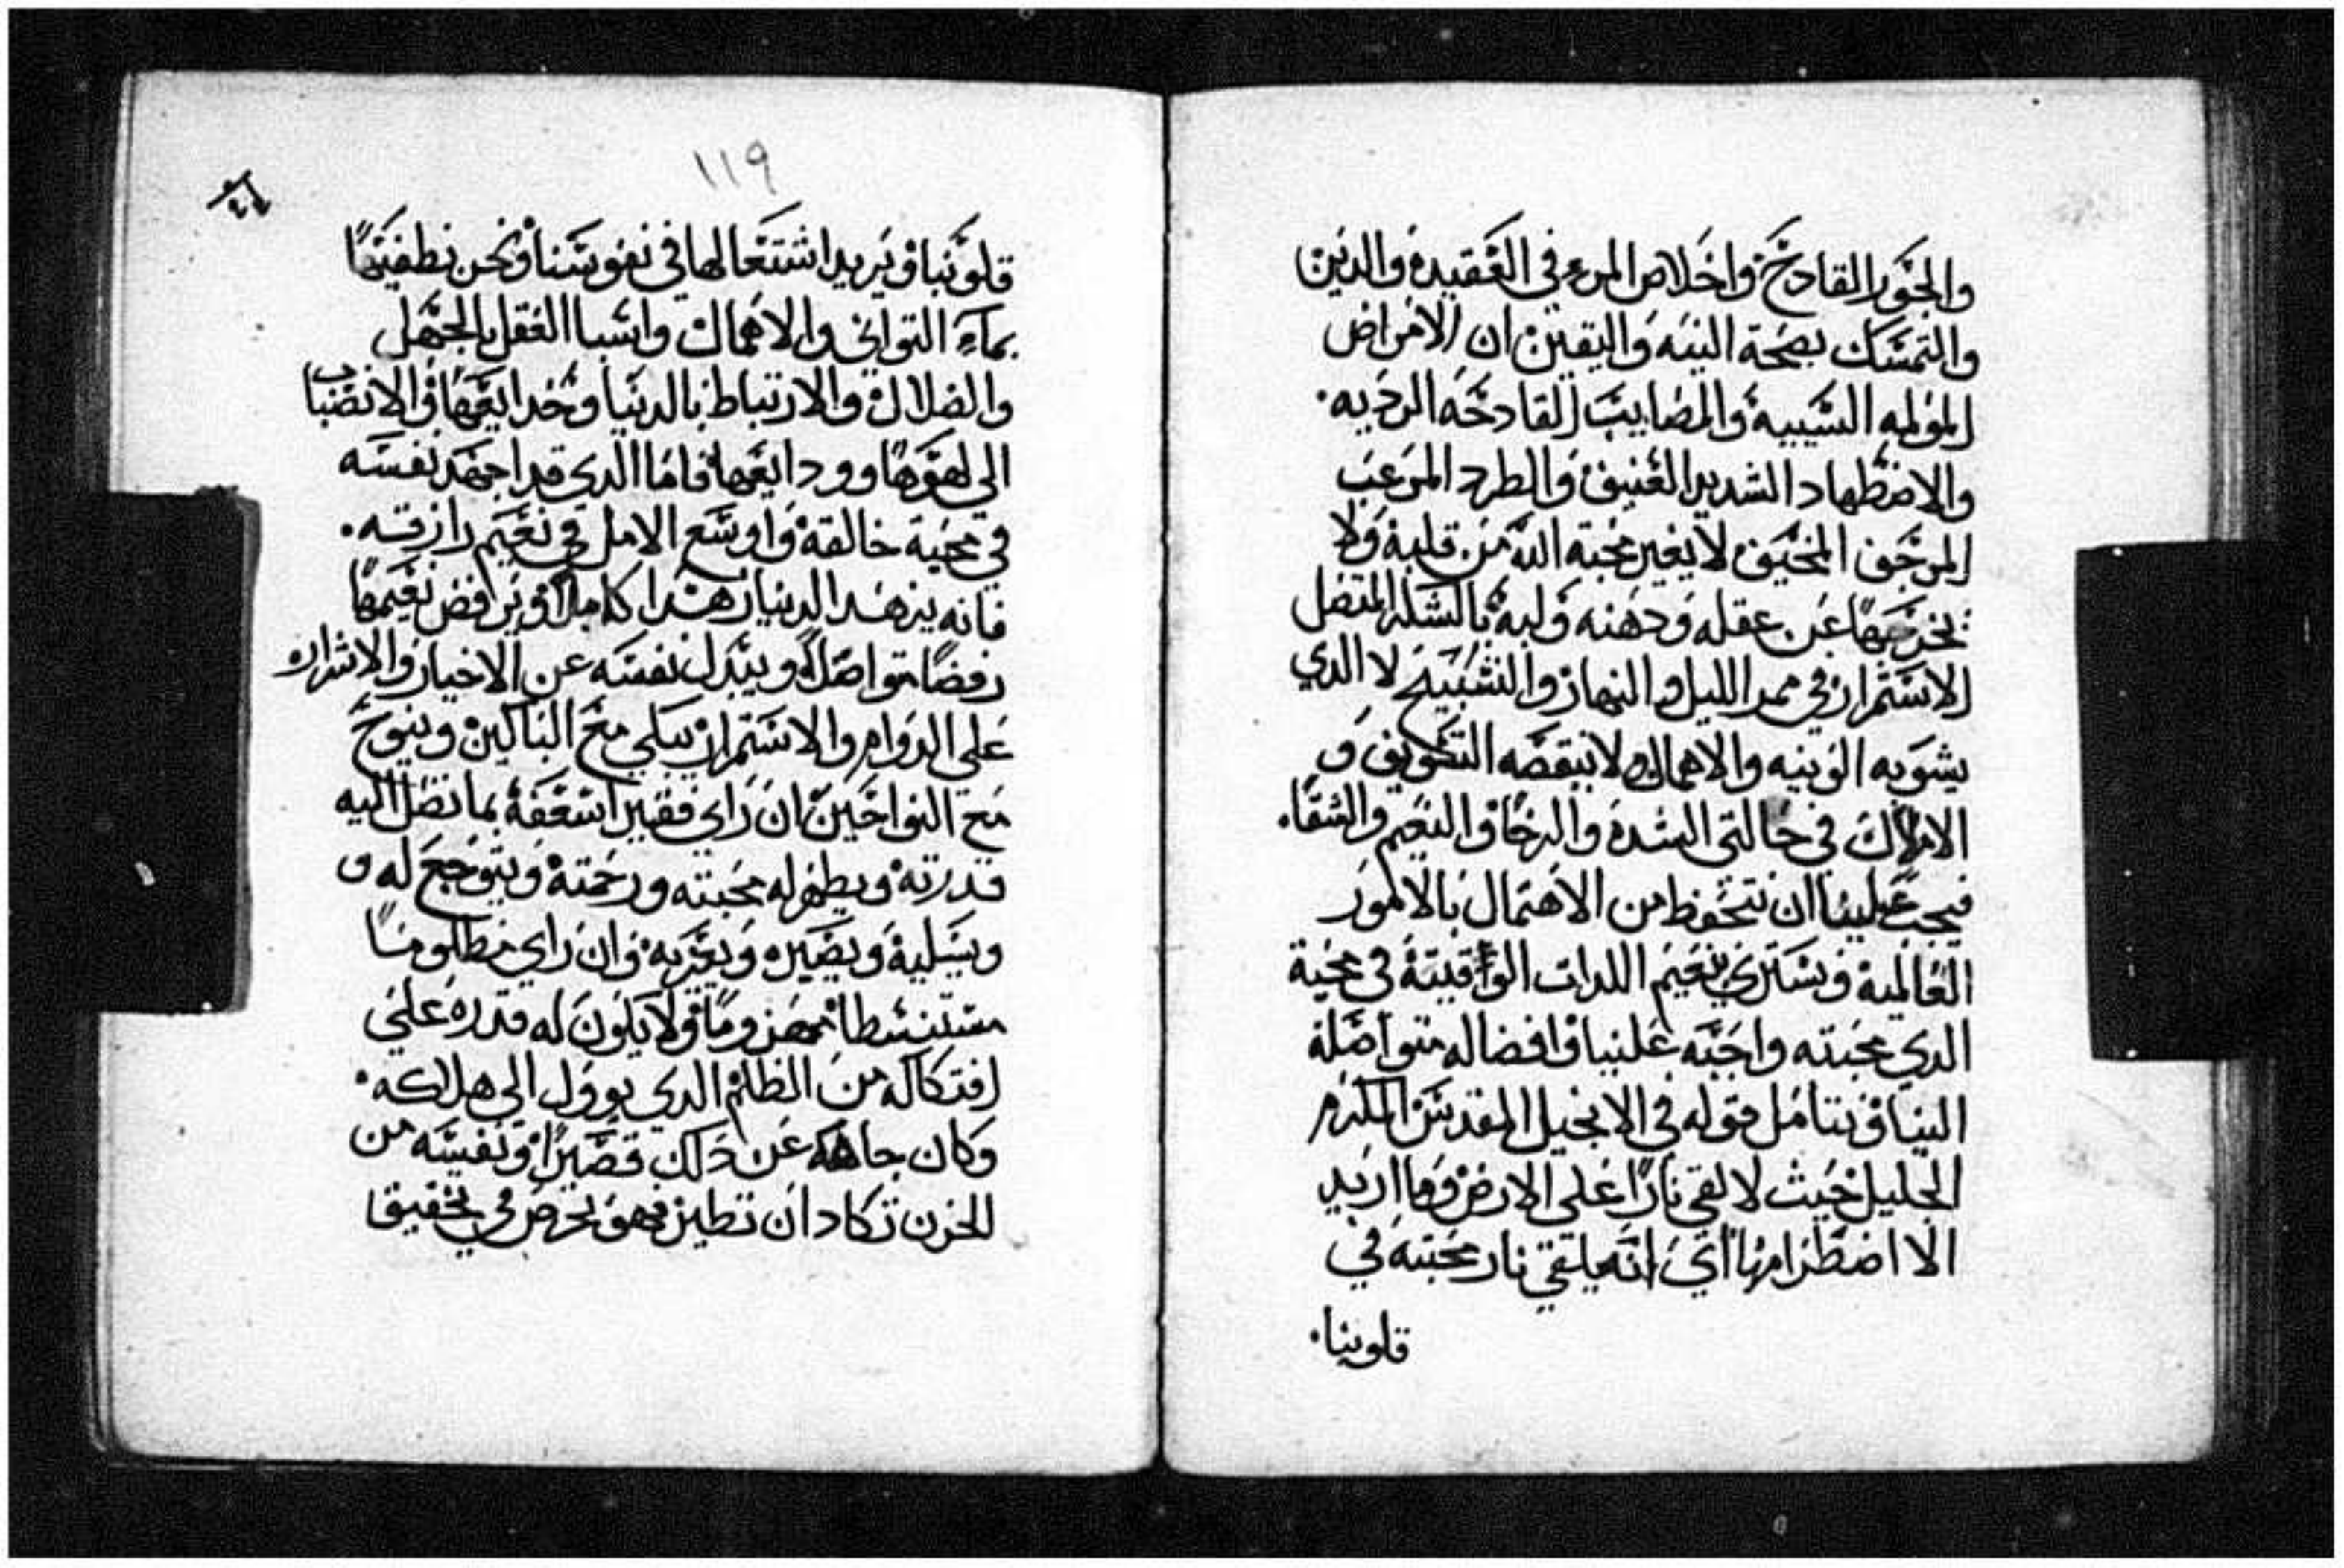 والجور القادح واخلاص المرء في العقيده والدين
والتمسك بصحة النيه واليقين ان الامراض
المولمه السيييه والمصايب القادحه الرديه.
والاضطهاد الشديد العنيف والطرد المرعب
المرجف المخيف لا يغير محبة الله من قلبه ولا
يخرجها عن عقله ودهنه ولبه بالشكر المتصل
الاستمرار في ممر الليل والنهار والتسبيح لا الدي
يشوبه الونيه والاهمال ولا ينقصه التخويف و
الاملاك في حالتي الشده والرخا والنعيم والشقاء.
فيجب علينا ان نتحفظ من الاهتمال بالامور
العالميه ونشتري نعيم اللدات الواقيته في محبة
الدي محبته واجبه علينا وافضاله متواصله
الينا ونتامل قوله في الانجيل المقدس المكرم
الجليل حيث لالقي نارا على الارض وما اريد
الا اضطرامها اي انه يلقي نار محبته في
قلوبنا.
١١٩
قلوبنا ويريد اشتعالها في نفوسنا ونحن نطفيها
بماء التواني والاهمال واشبا العقل بالجهل
والضلال والارتباط بالدنيا وخدايعها والانصباب
الي لهوها وودايعها فاما الدي قد اجهد نفسه
في محبة خالقه واوسع الامل في نعيم رازقه.
فانه يزهد الدنيا زهدا كاملا ويرافض نعيمها
رفضا متواصلا ويبدل نفسه عن الاخيار والاشرار
علي الدوام والاستمرار يبكي مع الباكين وينوح
مع النواحين ان راي فقيرا اسعفه بما تصل اليه
قدرته ويظهر له محبته ورحمته ويتوجع له و
ويسليه ويصبره ويعزيه وان راي مظلوما
مستنشطا مهزوما ولا يكون له قدره علي
افتكاكه من الظلم الدي يوول الي هلاكه.
وكان جاهه عن دلك قصيرا ونفسه من
الحزن تكاد ان تطير فهو يحرص في تحقيق